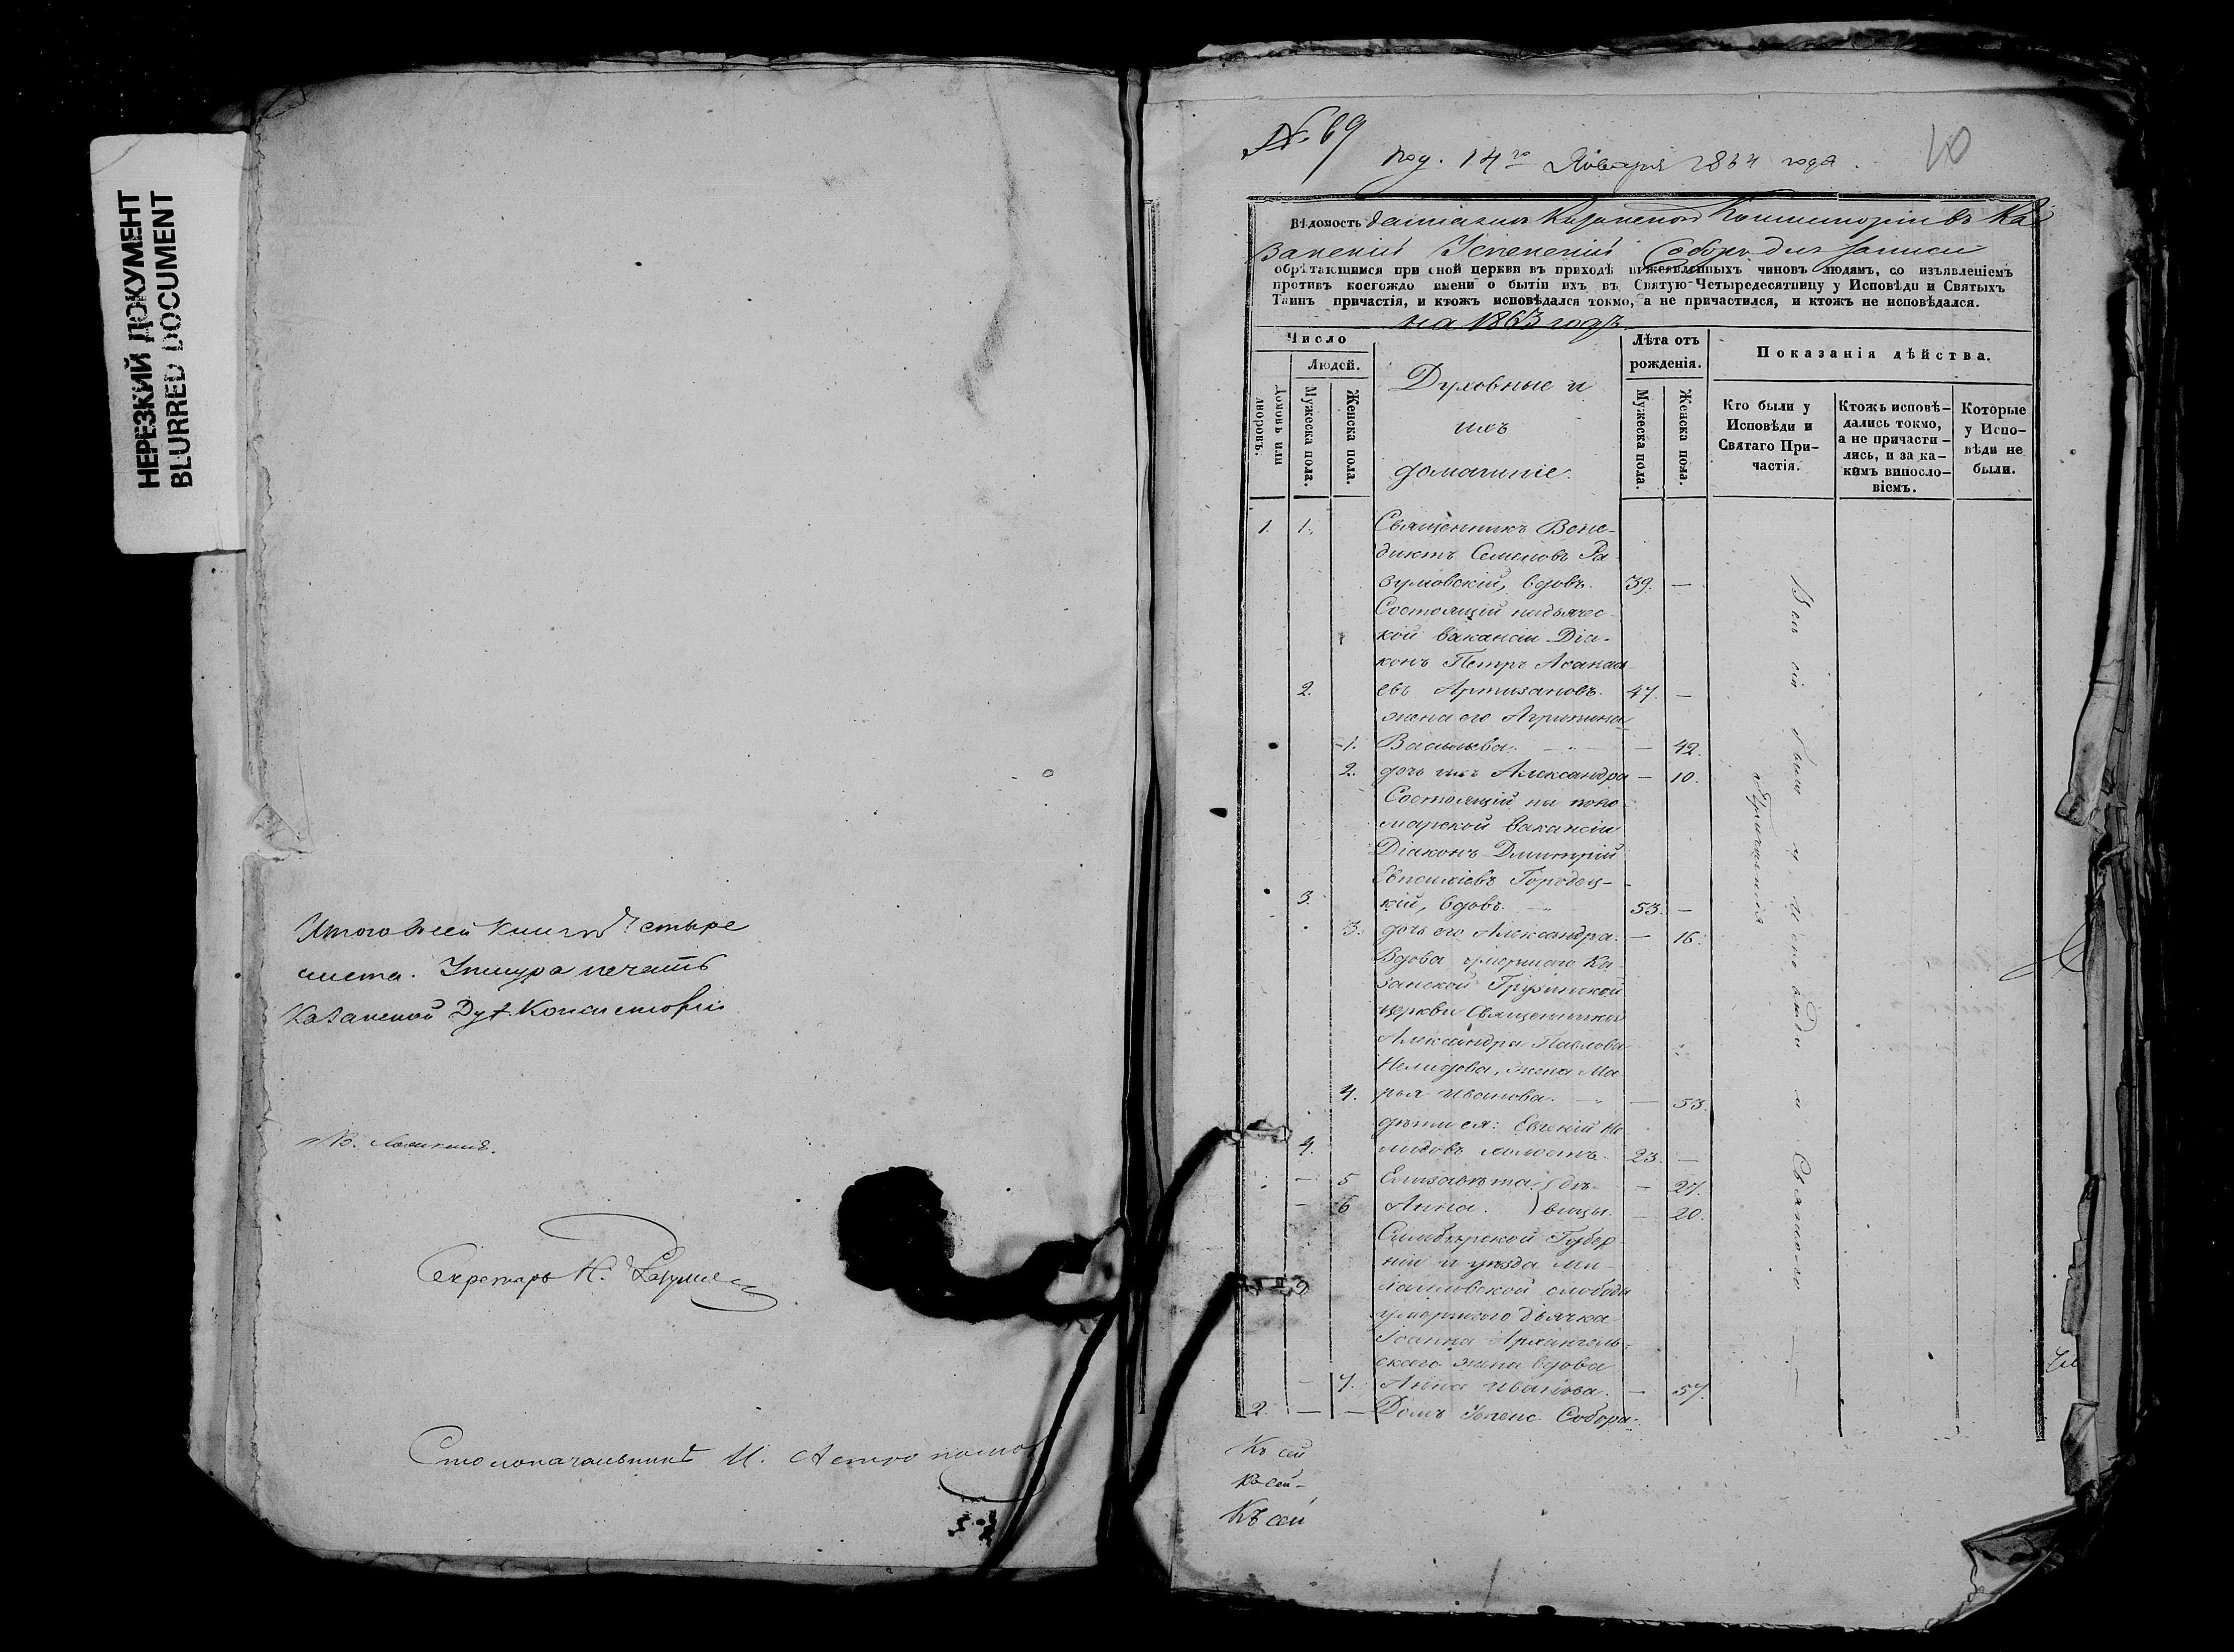 НЕРЕЗКИЙ ДОКУМЕНТ
BLURRED DOCUMENT
Итого в сей книге четыре
листа. У шнура печать
Казанской Дух. Консисторіи
Секретарь И.
Столоначальникъ И.
№ 69
10
Под. 14го Января 1864 года.
Вѣдомость данная изъ Казанской Консисторіи въ Ка-
занскій Успенскій Соборъ для записи
обрѣтающимся при оной церкви въ приходѣ нижеявленныхъ чиновъ людямъ, со изъявленіемъ
противъ коегождо имени о бытіи ихъ въ Святую Четыредесятницу у Исповѣди и Святыхъ
Таинъ причастія, и ктожъ исповѣдался токмо, а не причастился, и ктожъ не исповѣдался.
на 1863 годъ.
Число
Людей.
Домовъ или дворовъ.
Мужеска пола.
Женска пола.
Духовные и
ихъ
домашніе.
Лѣта отъ
рожденія.
Мужеска пола.
Женска пола.
Показанія дѣйства.
Кто были у
Исповѣди и
Святаго При-
частія.
Ктожъ исповѣ-
дались токмо,
а не причасти-
лись, и за ка-
кимъ винносло-
віемъ.
Которые
у Испо-
вѣди не
были.
1. 1. Священникъ Вене-
диктъ Семеновъ Ра-
зумовскій, вдовъ. 39. —
Состоящій на дьячес-
кой вакансіи Діа-
конъ Петръ
2. евъ 47. —
жена его Агрипина
1. Васильева. — 42.
2. дочь ихъ Александра — 10.
Состоящій на поно-
марской вакансіи
Діаконъ Дмитрій
Евпсихіевъ Городец-
3. кій, вдовъ. 53. —
3. дочь его Александра. — 16.
Вдова умершаго Ка-
занской Грузинской
церкви Священника
Александра Павлова
Нелидова, жена Ма-
4. рья Иванова. — 53.
дѣти ея: Евгеній Не-
4. лидовъ холостъ. 23. —
— 5 Елизавета } дѣ- — 27.
— 6 Анна. } вицы. — 20.
Симбирской Губер-
ніи и уѣзда Ми-
хайловской слободы
умершаго дьячка
Іоанна Архангель-
скаго жена вдова
— 7. Анна Иванова. — 57.
2. — — Домъ Успенс. Собора.
Всѣ сіи были у Исповѣди и Святаго
Причастія
Къ сей
Къ сей
Къ сей